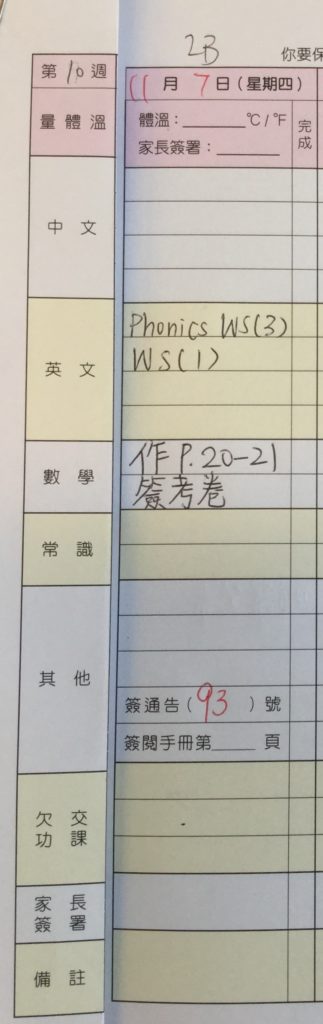 2B
你要保
第10週
11月7日(星期四)
量體溫
體溫：______℃/℉
家長簽署：______
完成
中文
英文
Phonics WS(3)
WS(1)
數學
作P.20-21
簽考卷
常識
其他
簽通告(93)號
簽閱手冊第____頁
欠交功課
家長簽署
備註